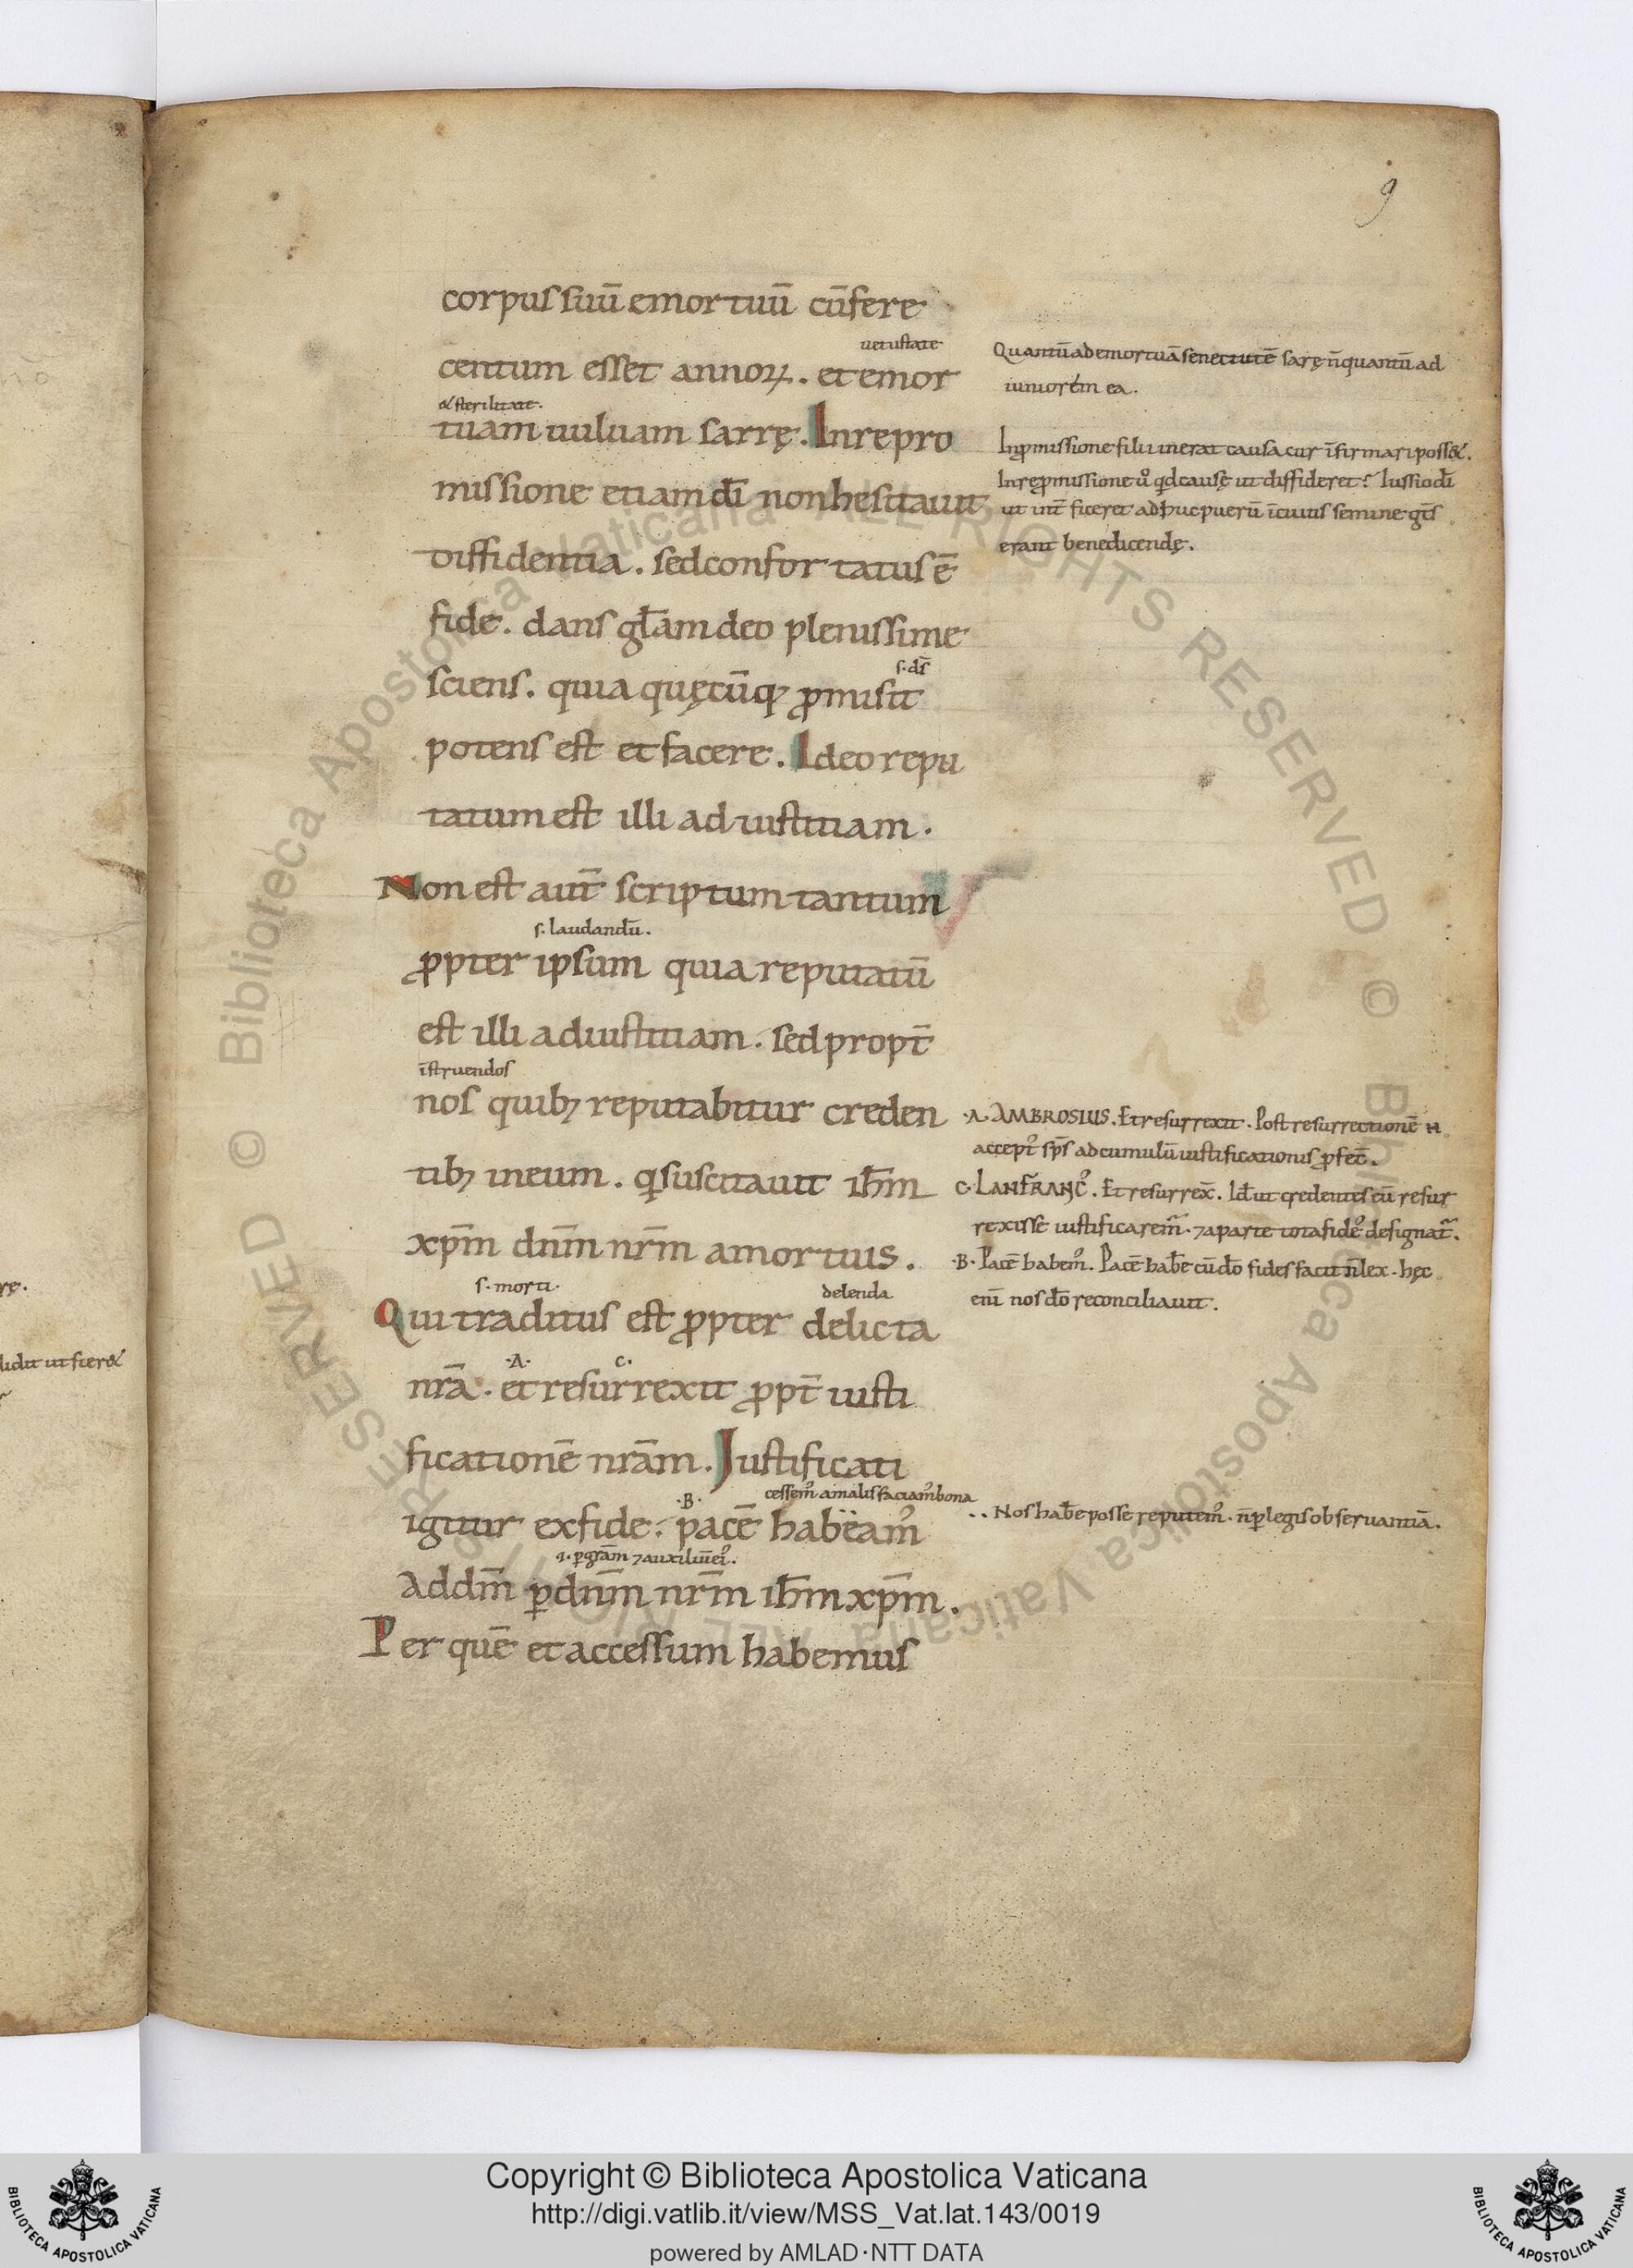 9
corpus suū emortuū cūfere
uetustate
centum esset annoꝝ. et emor
& sterilitate.
tuam uuluam sarrę. Inrepro
missione etiam dī non hesitauit
diffidentia. sed confortatus ē
fide. dans gl̄am deo plenissime
s. ds̄
sciens. quia quęcūq; ꝓmisit
potens est et facere. Ideo repu
tatum est illi ad iustitiam.
Non est aut̄ scriptum tantum
s. laudandū.
ꝓpter ipsum quia reputatū
est illi ad iustitiam. sed propt̄
īstruendos
nos quib; reputabitur creden
tib; in eum. q̇ suscitauit ih̄m
xp̄m dn̄m nr̄m a mortuis.
s. morti. delenda
Qui traditus est ꝓpter delicta
.A. C.
nr̄a. et resurrexit ꝓpt̄ iusti
ficationē nr̄am. Justificati
.B. cessem᾽ a malis faciam᾽ bona
igitur ex fide. pacē habeam᾽
.i. ꝑ gr̄am ⁊ auxiliū ei᾽.
ad dm̄ ꝑ dn̄m nr̄m ih̄m xp̄m.
Per quē et accessum habemus
Quantū ad emortuā senectutē sarę n̄ quantū ad
iuniorem ea.
In ꝓmissione filii inerat causa cur īfirmari poss&.
In reꝓmissione u᾽ qd̄ causę ut diffideret? Iussio dī
ut int̄ficeret adhuc puerū ī cuius semine gt̄s
erant benedicendę.
.A. AMBROSIUS. Et resurrexit. Post resurrectionē n̄
accept᾽ sp̄s ad cumulū iustificationis ꝓfec̄.
C. LANFRANC᾽. Et resurrex̄. Id̄ ut credentes eū resur
rexisse iustificarem᾽. ⁊ a parte tota fides designat᾽.
.B. Pacē habem᾽. Pacē hab̄e cū dō fides facit n̄ lex. hęc
enī nos dō reconciliauit.
.. Nos hab̄e posse reputem᾽. n̄ ꝑ legis obseruantiā.
rę.
lidit ut fier&
Copyright © Biblioteca Apostolica Vaticana
http://digi.vatlib.it/view/MSS_Vat.lat.143/0019
powered by AMLAD·NTT DATA
BIBLIOTECA APOSTOLICA VATICANA
BIBLIOTECA APOSTOLICA VATICANA
© Biblioteca Apostolica Vaticana ALL RIGHTS RESERVED © Biblioteca Apostolica Vaticana ALL RIGHTS RESERVED